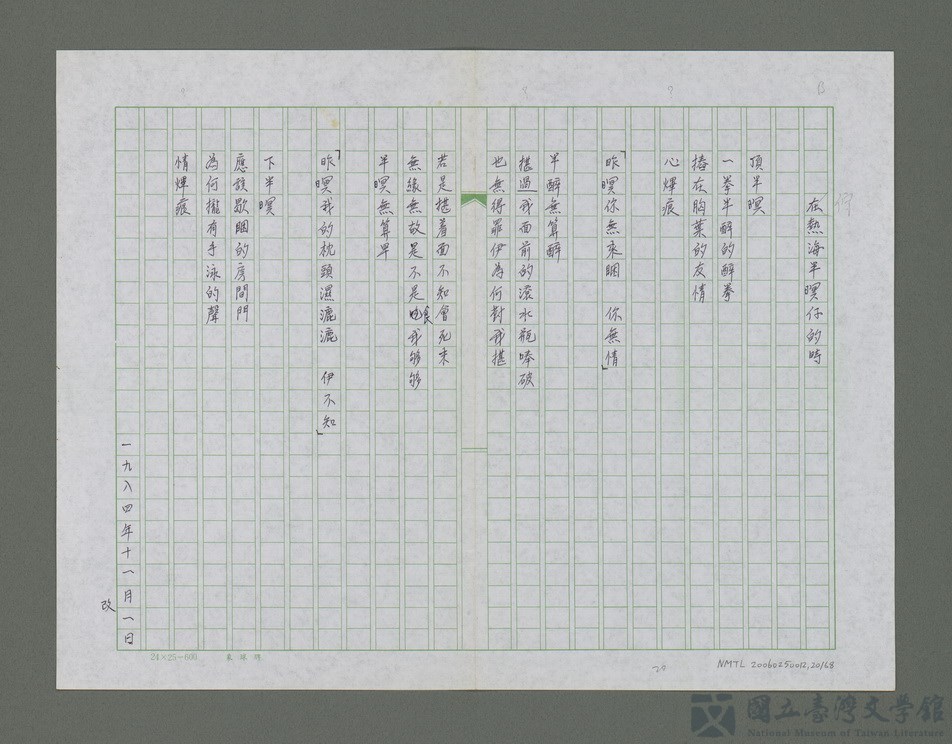 在熱海半暝仔的時
頂半暝
一拳半醉的醉拳
捲在胸葉的友情
心爆痕
「昨暝你無來睏 你無情」
半醉無算醉
搓過我面前的滾水瓶嘜破
也無得罪伊為何對我搓
若是搓着面不知會死未
無緣無故是不是食我够够
半暝無算早
「昨暝我的枕頭濕漉漉 伊不知」
下半暝
應該歇睏的房間門
為何攏有手泳的聲
情爆痕
一九八四年十一月一日
改
24×25=600
NMTL 20060250012,20/68
20
B
國立臺灣文學館
National Museum of Taiwan Literature